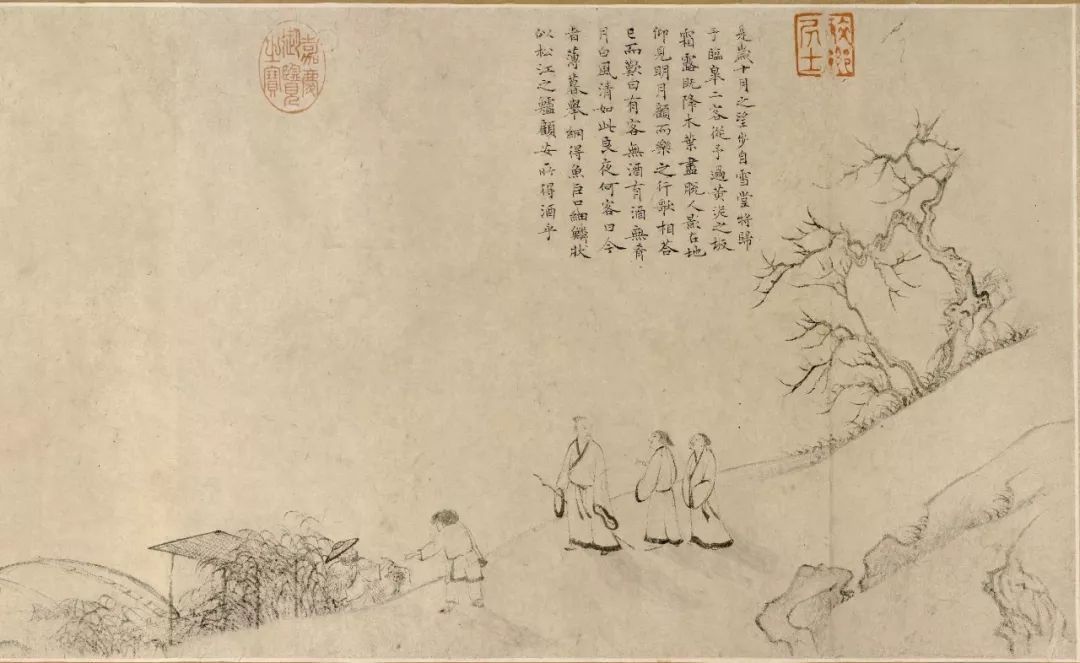 是歲十月之望步自雪堂將歸
于臨皋二客從予過黃泥之坂
霜露既降木葉盡脫人影在地
仰見明月顧而樂之行歌相荅
已而歎曰有客無酒有酒無肴
月白風清如此良夜何客曰今
者薄暮舉網得魚巨口細鱗狀
似松江之鱸顧安所得酒乎
嘉慶
御覽
之寶